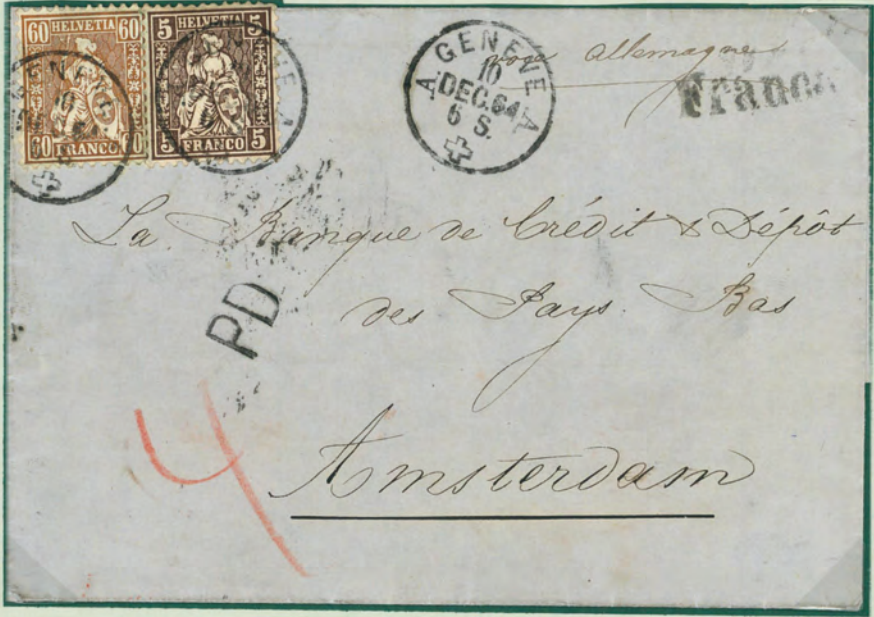 60 HELVETIA 60
60 FRANCO 60
5 HELVETIA 5
5 FRANCO 5
A GENÈVE A
10
DEC. 64
6 S.
allemagne
Franco
La Banque de Crédit & Dépôt
des Pays Bas
PD
4
Amsterdam